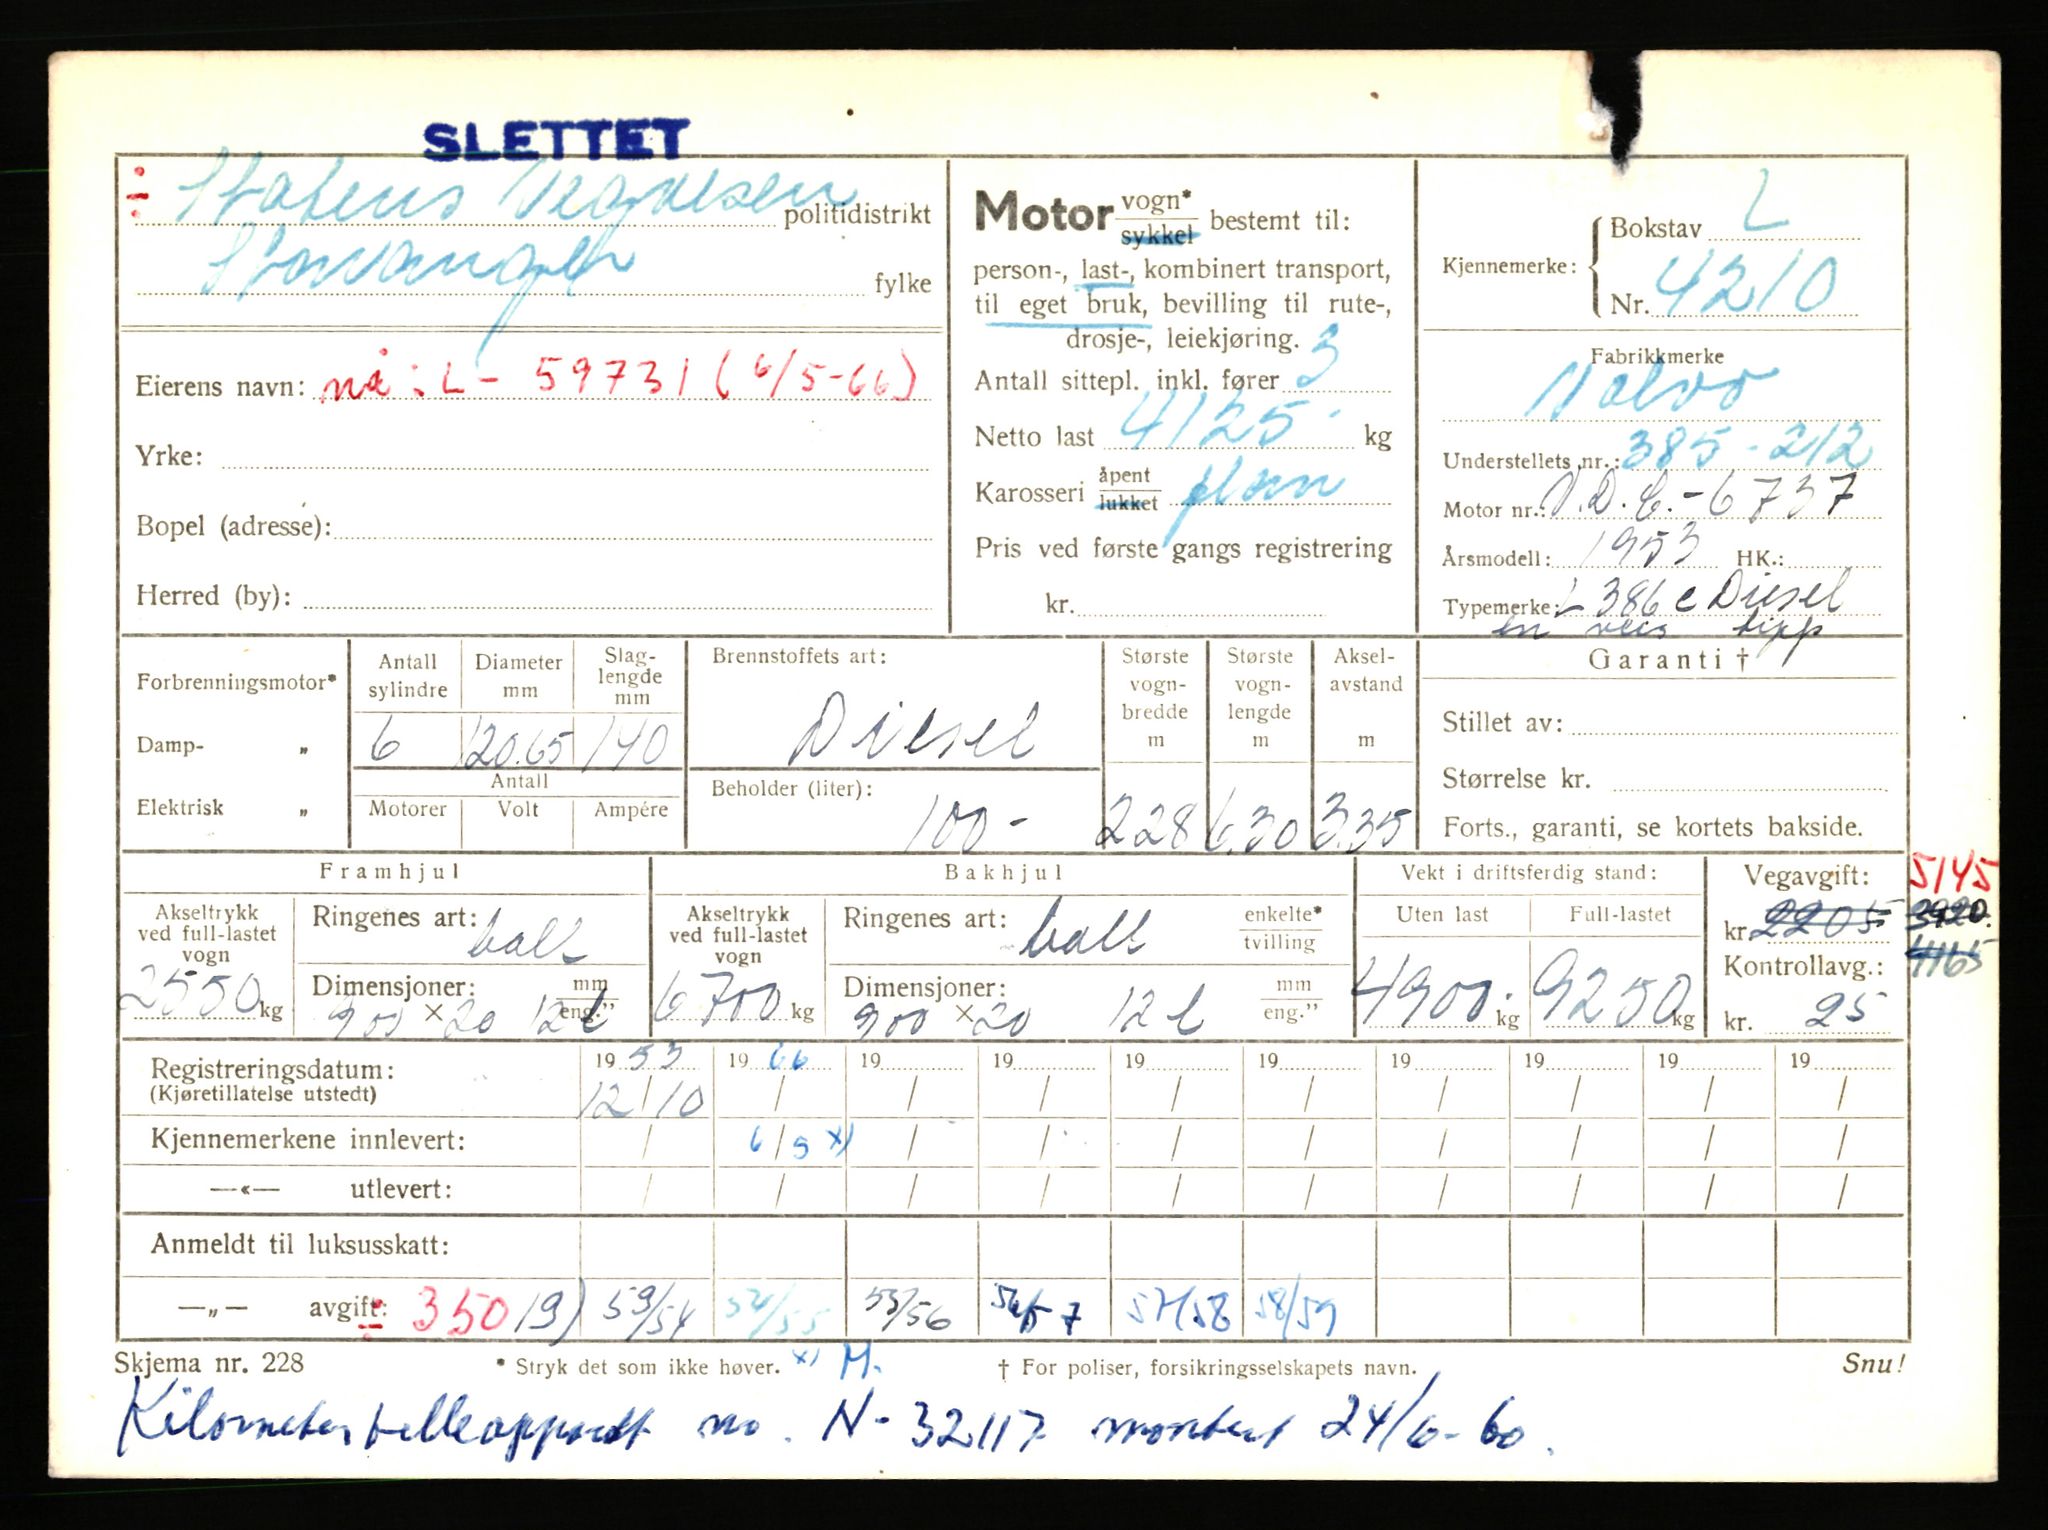 SLETTET
÷ Statens Vegvesen politidistrikt
Stavanger fylke
Eierens navn: nå: L - 59731 (6/5-66)
Yrke:
Bopel (adresse):
Herred (by):
Motor vogn* sykkel bestemt til:
person-, last-, kombinert transport,
til eget bruk, bevilling til rute-,
drosje-, leiekjøring.
Antall sittepl. inkl. fører 3
Netto last 4125 kg
Karosseri åpent lukket plan
Pris ved første gangs registrering
kr.
Kjennemerke:
Bokstav L
Nr. 4210
Fabrikkmerke
Volvo
Understellets nr.: 385-212
Motor nr.: V.D.C.-6737
Årsmodell: 1953 HK.:
Typemerke: L 386 c Diesel
en veis tipp
Forbrenningsmotor*
Damp- „
Elektrisk „
Antall sylindre 6
Diameter mm 120.65
Slag-lengde mm 140
Antall
Motorer Volt Ampére
Brennstoffets art:
Diesel
Beholder (liter):
100-
Største vogn-bredde m 228
Største vogn-lengde m 6.30
Aksel-avstand m 3.35
Garanti †
Stillet av:
Størrelse kr.
Forts., garanti, se kortets bakside.
Framhjul
Akseltrykk ved full-lastet vogn 2550 kg
Ringenes art: ball
Dimensjoner: mm eng."
900 × 20 12 l
Bakhjul
Akseltrykk ved full-lastet vogn 6700 kg
Ringenes art: ball enkelte* tvilling
Dimensjoner: mm eng."
900 × 20 12 l
Vekt i driftsferdig stand:
Uten last 4900 kg
Full-lastet 9250 kg
Vegavgift: 5145
kr. 2205 3920.
Kontrollavg.: 4165
kr. 25
Registreringsdatum: 19 53 19 66 19 19 19 19 19 19 19 19
(Kjøretillatelse utstedt) 12/10 / / / / / / / / /
Kjennemerkene innlevert: / 6/5 x) / / / / / / / /
—«— utlevert: / / / / / / / / / /
Anmeldt til luksusskatt:
—„— avgift: ÷ 350 19) 53/54 54/55 55/56 56/57 57/58 58/59
Skjema nr. 228 * Stryk det som ikke høver. x) H. † For poliser, forsikringsselskapets navn. Snu!
Kilometertelleapparat no. N-32117 montert 24/6-60.